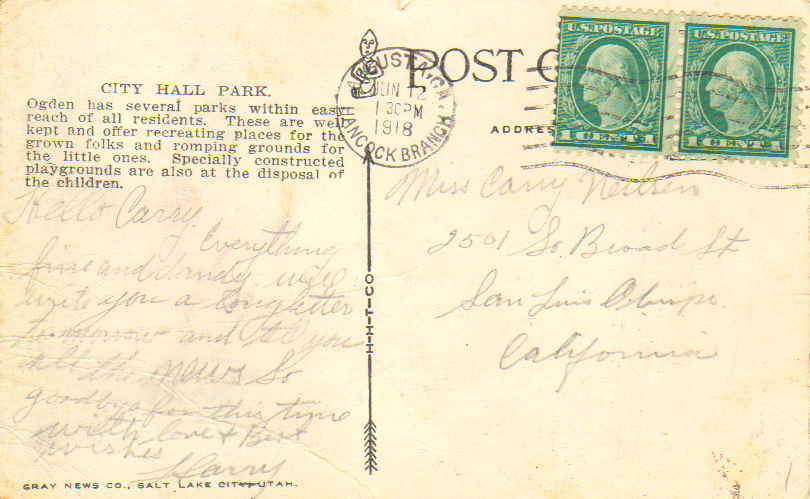 CITY HALL PARK.
Ogden has several parks within easy
reach of all residents. These are well
kept and offer recreating places for the
grown folks and romping grounds for
the little ones. Specially constructed
playgrounds are also at the disposal of
the children.
Hello Carry
Everything
fine and dandy will
write you a long letter
tomorrow and tell you
all the news So
goodbye for this time
with love & Best
wishes
Harry
GRAY NEWS CO., SALT LAKE CITY UTAH.
H-H-T-CO
AUGUSTA, GA.
JUN 12
1 30PM
1918
HANCOCK BRANCH
POST C
ADDRES
U.S. POSTAGE
1 CENT 1
U.S. POSTAGE
1 CENT 1
Miss Carry Neilsen
2501 So. Broad St
San Luis Obispo.
California